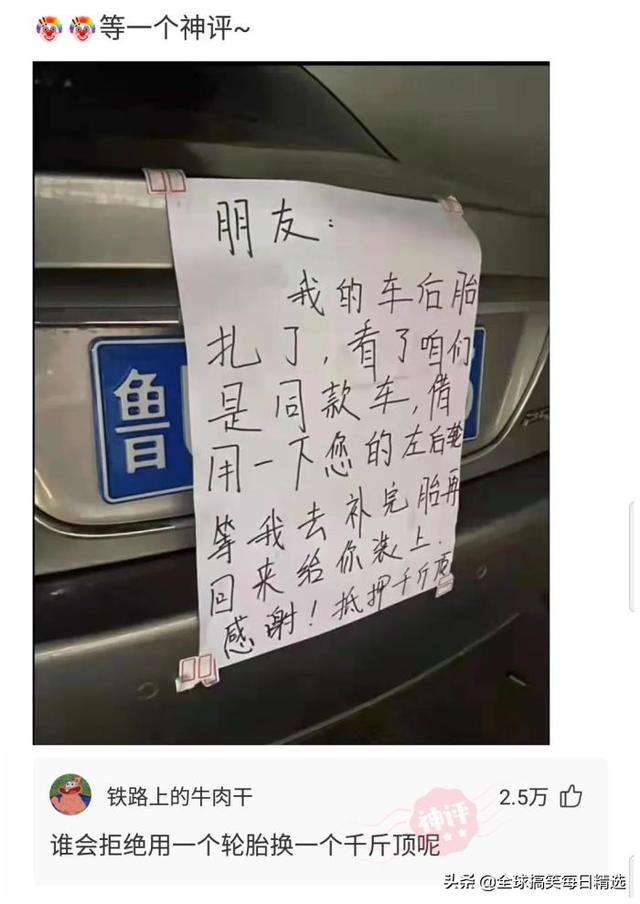 等一个神评~
朋友：
我的车后胎
扎了，看了咱们
是同款车，借
用一下您的左后轮
等我去补完胎再
回来给你装上.
感谢！抵押千斤顶
鲁
铁路上的牛肉干
2.5万
神评
谁会拒绝用一个轮胎换一个千斤顶呢
头条 @全球搞笑每日精选